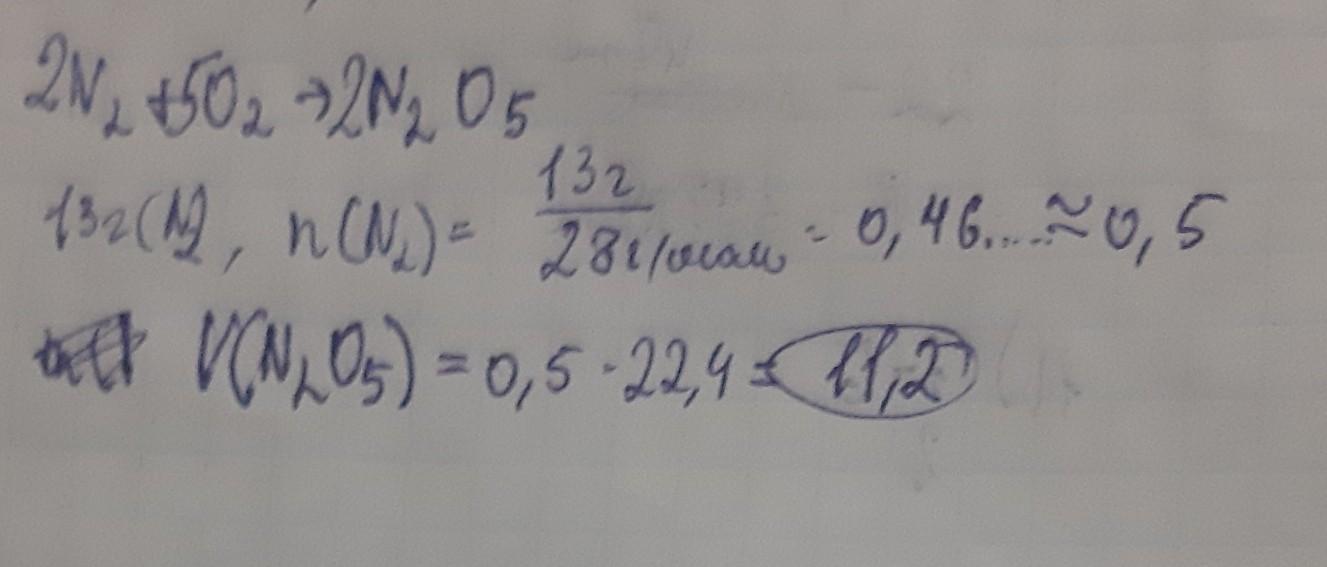 2N₂ + 5O₂ → 2N₂O₅
13г(N₂), n(N₂) = 13г / 28г/моль = 0,46.... ≈ 0,5
V(N₂O₅) = 0,5 · 22,4 = 11,2